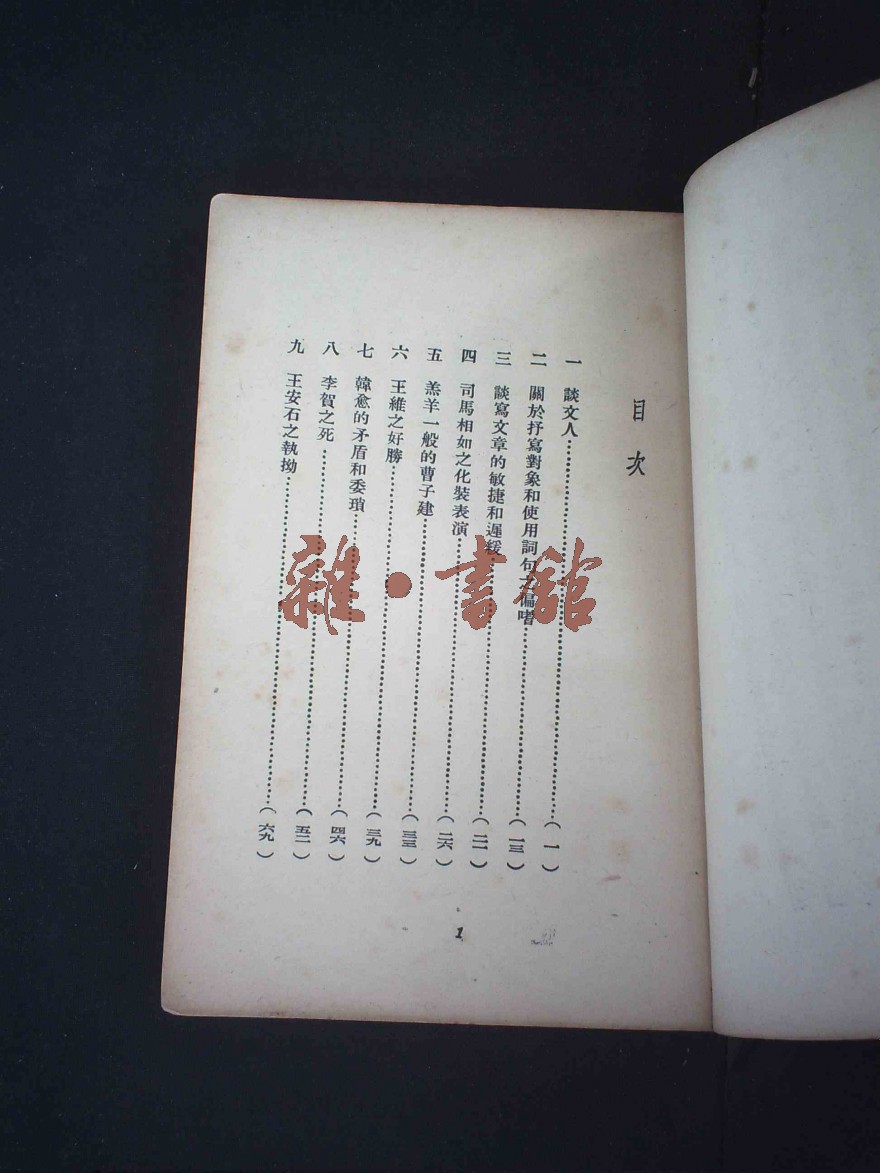 目次
一 談文人……(一)
二 關於抒寫對象和使用詞句之偏嗜……(一三)
三 談寫文章的敏捷和遲緩……(二一)
四 司馬相如之化裝表演……(二六)
五 羔羊一般的曹子建……(三三)
六 王維之好勝……(三九)
七 韓愈的矛盾和委瑣……(四六)
八 李賀之死……(五二)
九 王安石之執拗……(六九)
1
雜·書館